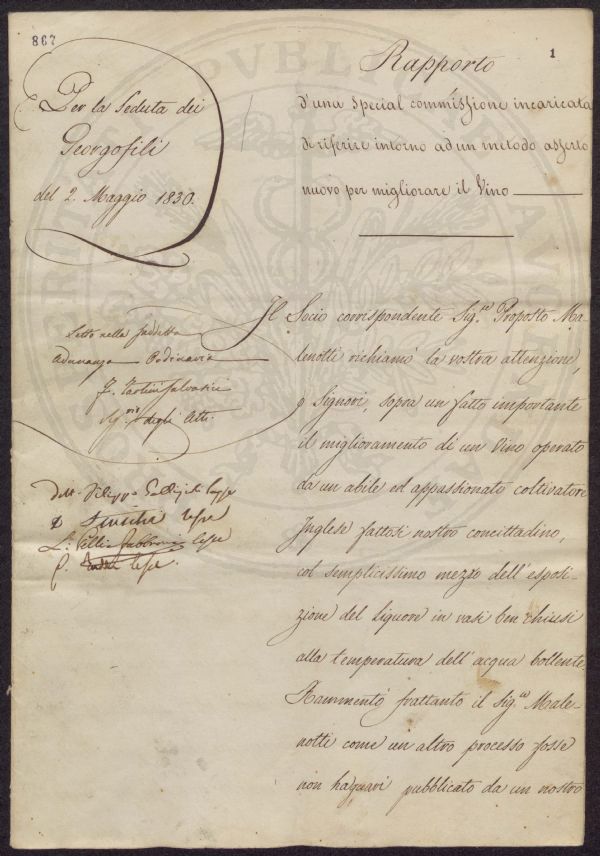 867
1
Per la Seduta dei
Georgofili
del 2. Maggio 1830.
Rapporto
d'una special commissione incaricata
di riferire intorno ad un metodo asserto
nuovo per migliorare il Vino
Letto nella suddetta
Adunanza Ordinaria
F. Tartini Salvatici
degli Atti.
Dott. Filippo Gallizioli
Il Socio corrispondente Sig.re Proposto Ma-
lenotti richiamò la vostra attenzione,
o Signori, sopra un fatto importante
il miglioramento di un Vino operato
da un abile ed appassionato coltivatore
Inglese fattosi nostro concittadino,
col semplicissimo mezzo dell'esposi-
zione del Liquore in vasi ben chiusi
alla temperatura dell'acqua bollente.
Rammentò frattanto il Sig.re Male-
notti come un altro processo fosse
non ha guari pubblicato da un nostro